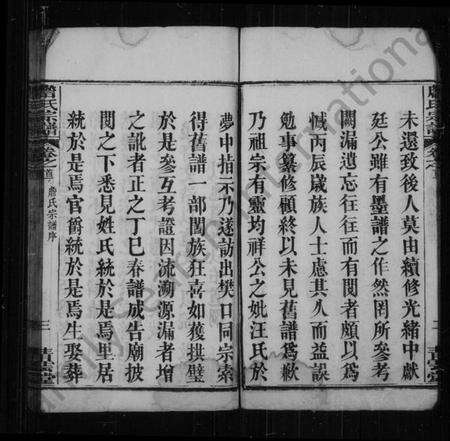 未還致後人莫由續修光緒中獻
廷公雖有墨譜之作然罔所參考
闕漏遺忘往往而有閱者頗以為
憾丙辰歲族人士慮其久而益誤
勉事纂修顧終以未見舊譜為歉
乃祖宗有靈均祥公之妣汪氏於
夢中指示乃遂訪出樊口同宗索
得舊譜一部闔族狂喜如獲拱璧
於是參互考證因流溯源漏者增
之訛者正之丁巳春譜成告廟披
閱之下悉見姓氏統於是焉里居
統於是焉官爵統於是焉生娶葬
詹氏宗譜
卷之首
詹氏宗譜序
三